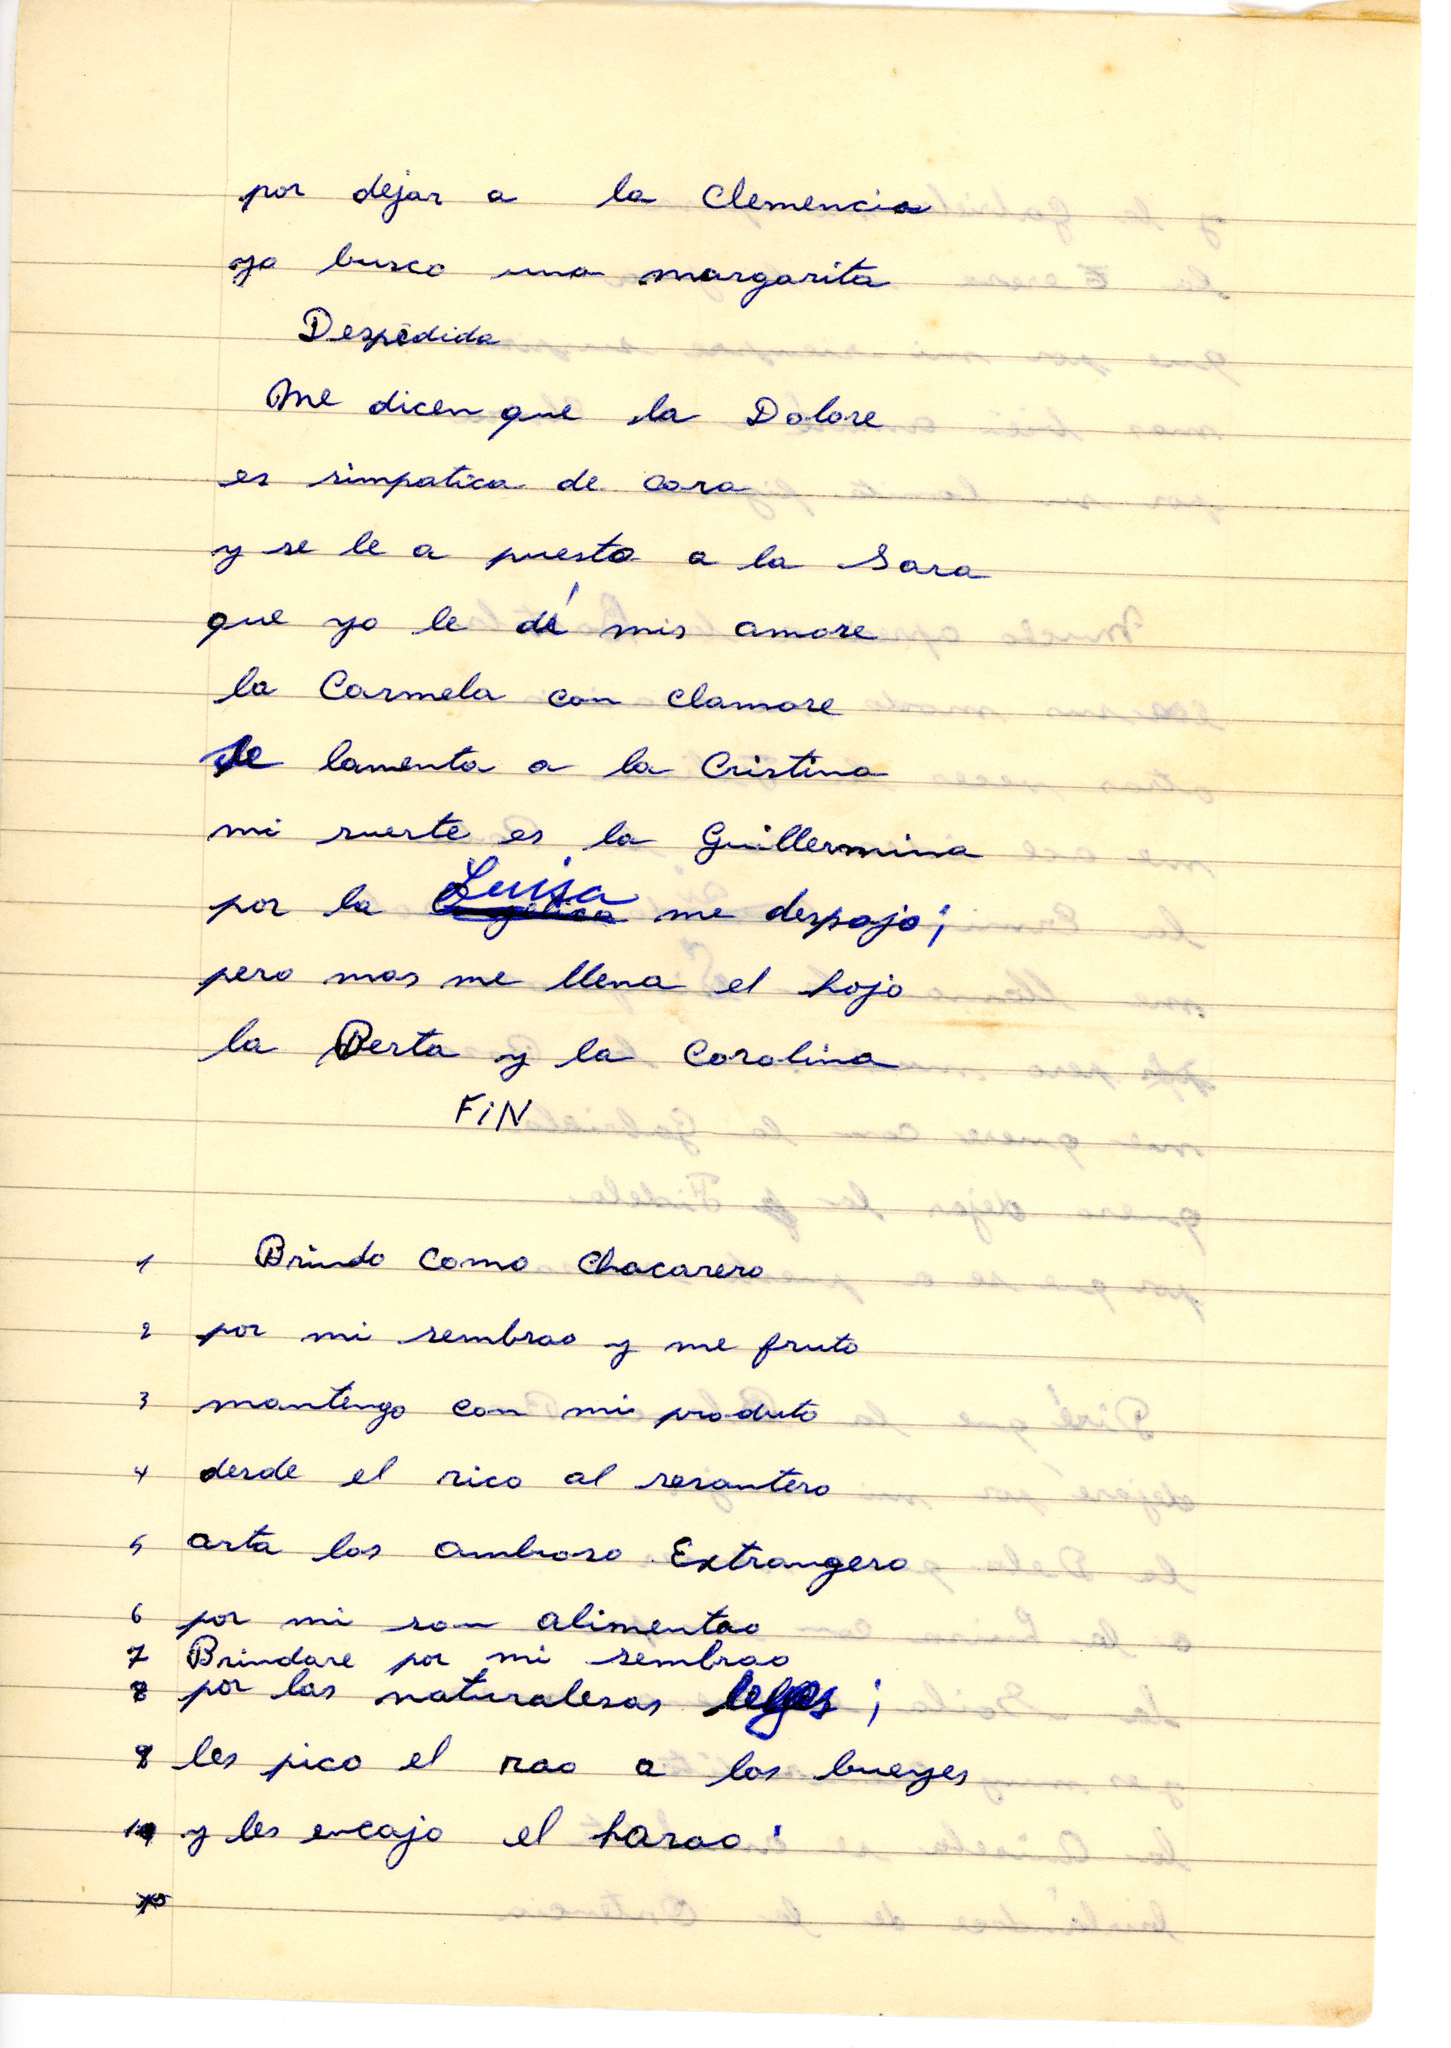 por dejar a la Clemencia
ya busco una margarita
Despedida
Me dicen que la Dolore
es simpatica de cara
y se le a puesto a la Sara
que yo le dé mis amore
la Carmela con clamore
se lamenta a la Cristina
mi suerte es la Guillermina
por la Luisa me despojo;
pero mas me llena el hojo
la Berta y la Carolina
FiN
1 Brindo Como Chacarero
2 por mi sembrao y me fruto
3 mantengo con mi produto
4 desde el rico al
5 arta los Extrangero
6 por mi son alimentao
7 Brindare por mi sembrao
8 por las naturalesas leyes;
9 les pico el rao a los bueyes
10 y les encajo el harao